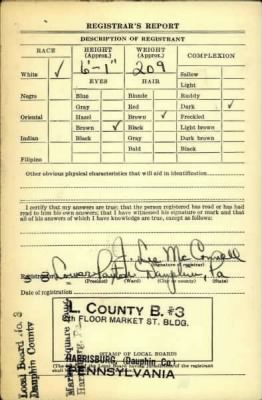 REGISTRAR'S REPORT
DESCRIPTION OF REGISTRANT
RACE HEIGHT (Approx.) WEIGHT (Approx.) COMPLEXION
White ✓ 6'-1" 209 Sallow
EYES HAIR Light
Negro Blue Blonde Ruddy
Gray Red Dark ✓
Oriental Hazel Brown ✓ Freckled
Brown ✓ Black Light brown
Indian Black Gray Dark brown
Bald Black
Filipino
Other obvious physical characteristics that will aid in identification
I certify that my answers are true; that the person registered has read or has had
read to him his own answers; that I have witnessed his signature or mark and that
all of his answers of which I have knowledge are true, except as follows:
J. Lee McConnell
(Signature of registrar)
Registrar Lower Paxton Dauphin, Pa
Date of registration
L. COUNTY B. #3
TH FLOOR MARKET ST. BLDG.
HARRISBURG, (Dauphin Co.)
PENNSYLVANIA
(STAMP OF LOCAL BOARD)
Local Board No. 3
Dauphin County